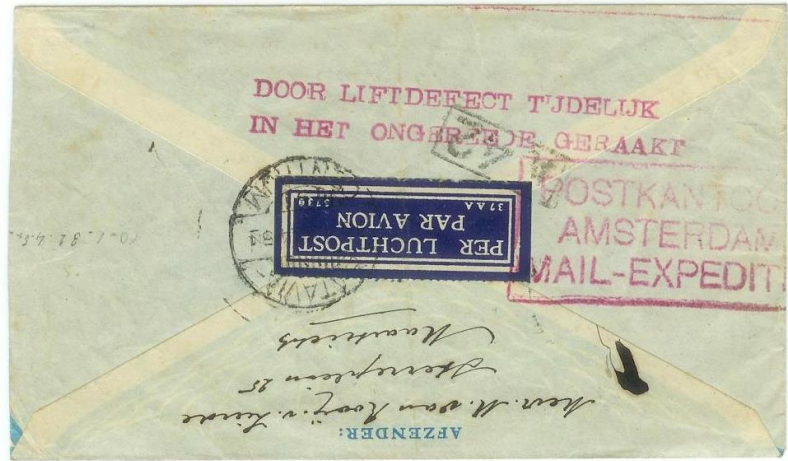 DOOR LIFTDEFECT TIJDELIJK
IN HET ONGEREEDE GERAAKT
POSTKANTOOR
AMSTERDAM
MAIL-EXPEDITI
PER LUCHTPOST
PAR AVION
37 AA
5730
AFZENDER:
Mevr. M. van Rooij-v. Linde
Sterreplein 25
Maastricht